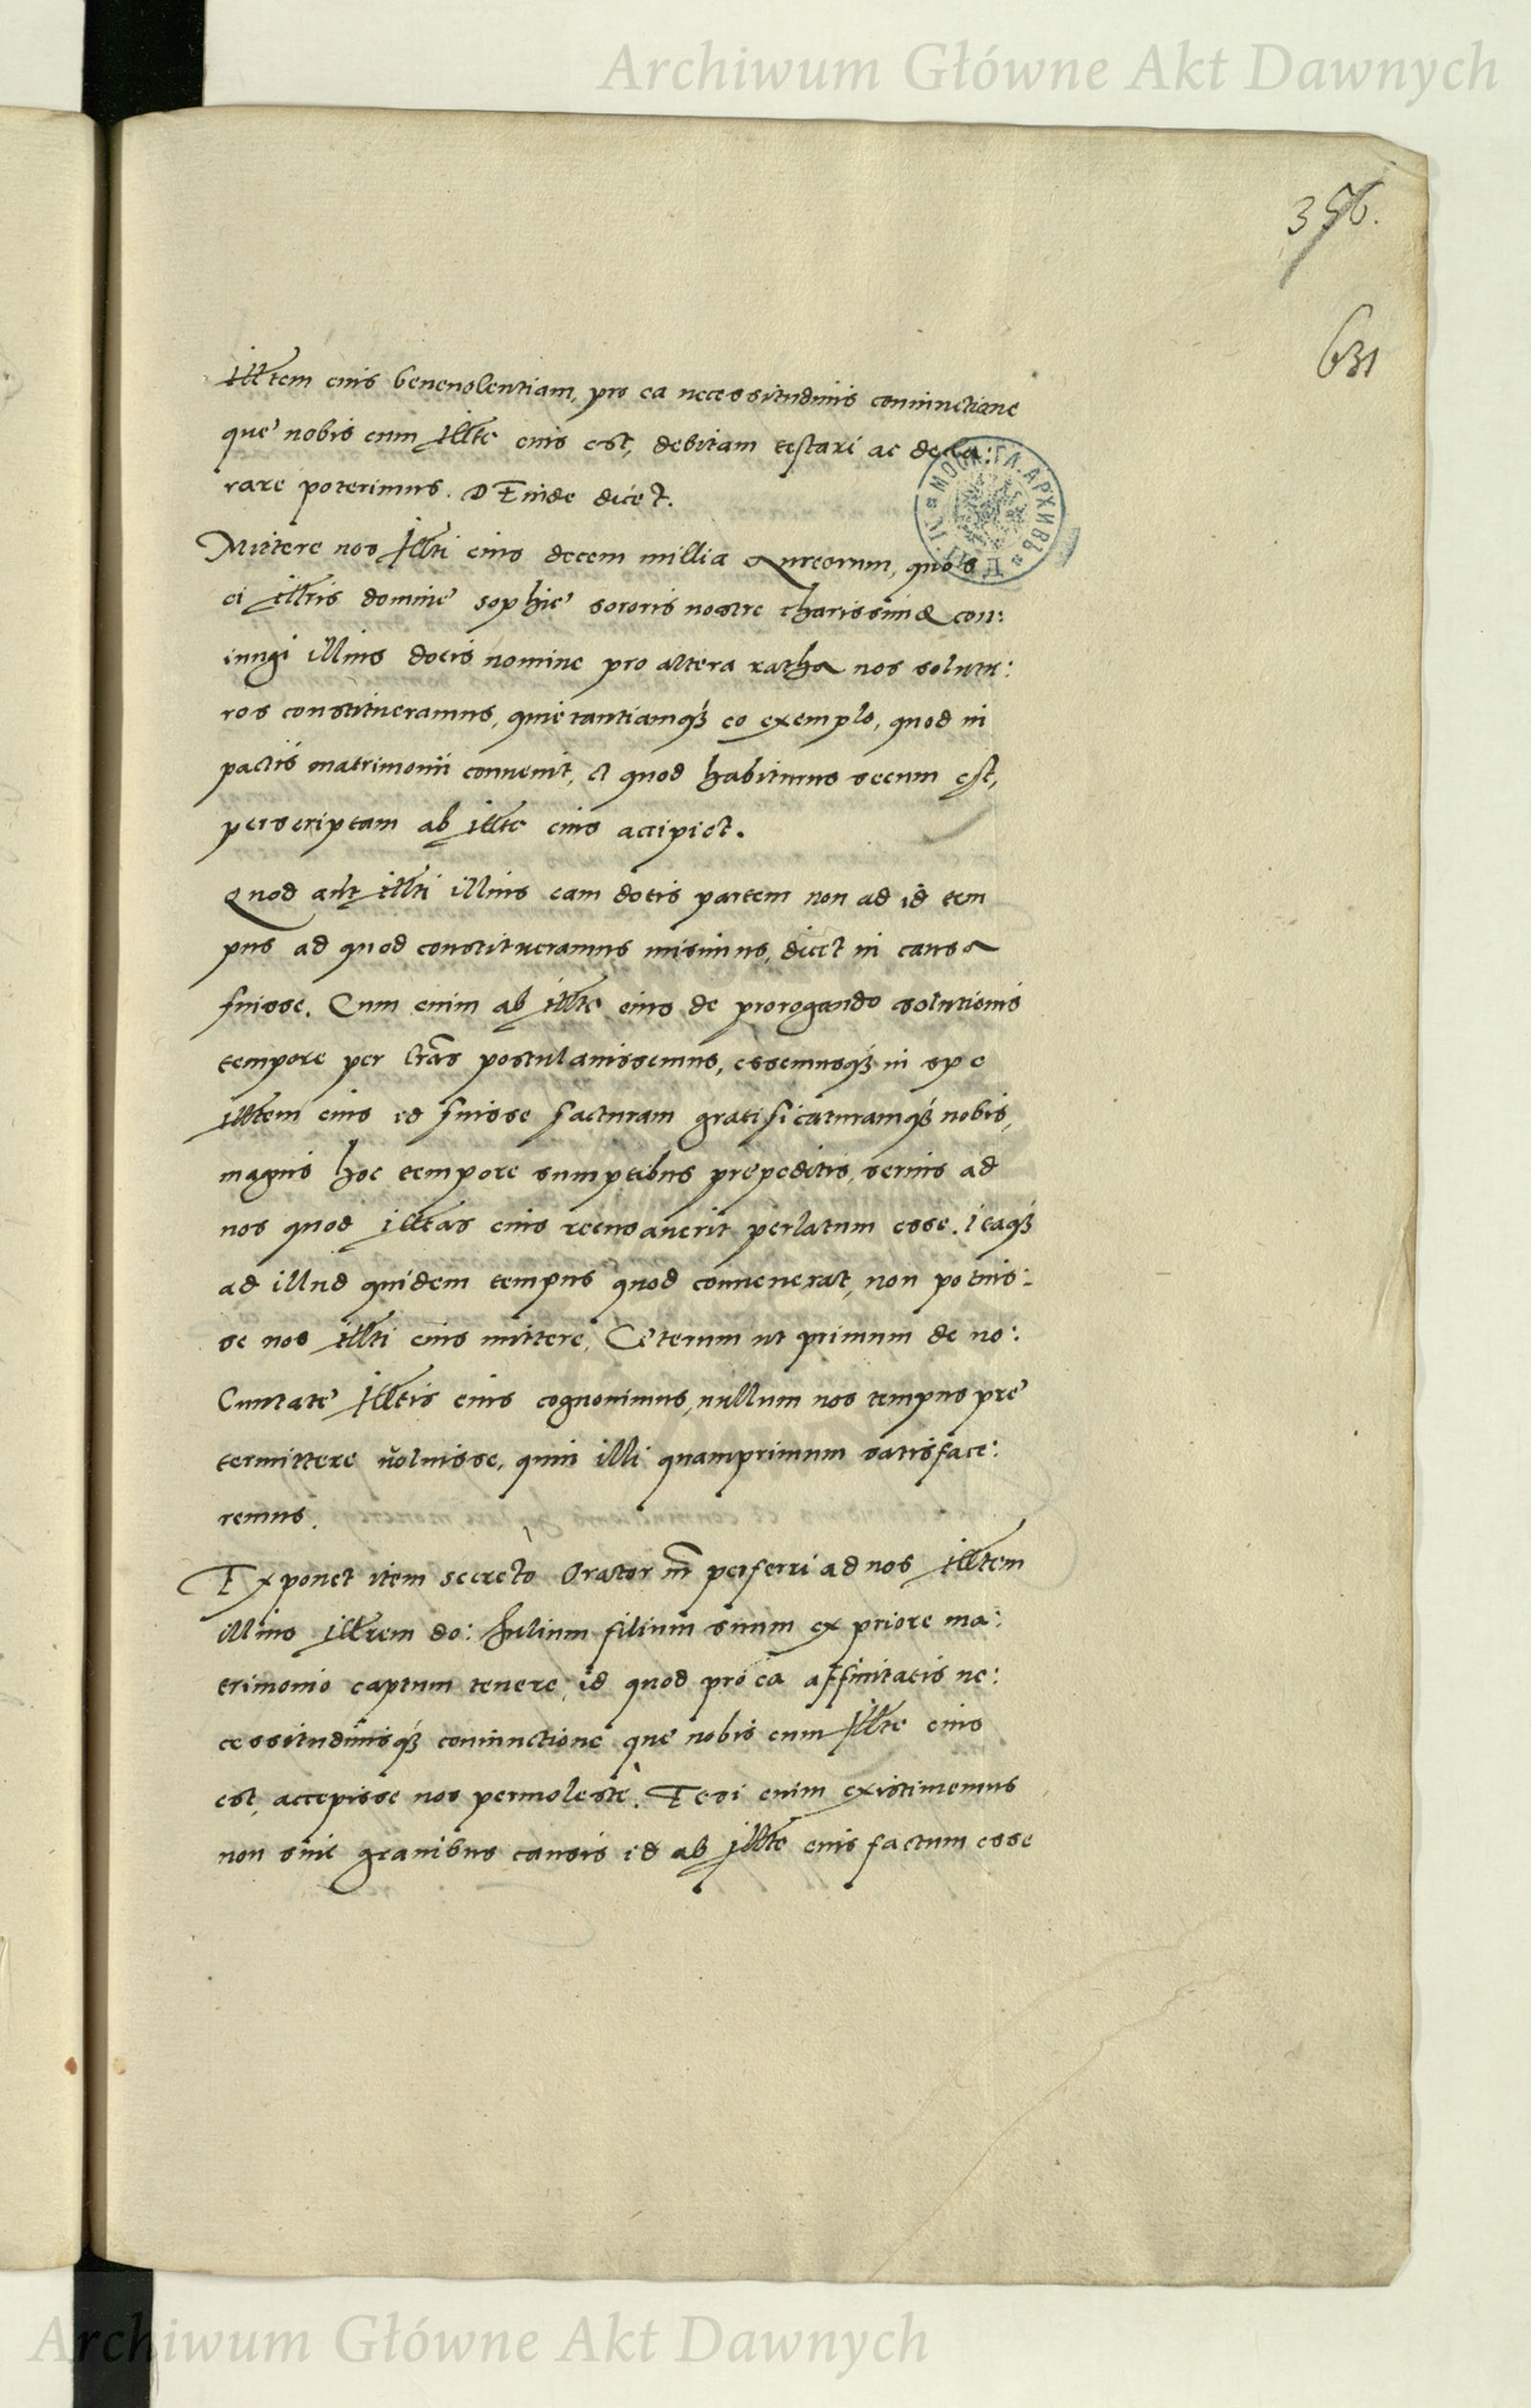 Archiwum Główne Akt Dawnych
356.
631
Illtem eius beneuolentiam, pro ea necessitudinis coniunctione
que nobis cum Illte eius est, debitam testari ac decla:
rare poterimus. DEinde dicet.
МОСК. ГЛ. АРХИВЪ
Mittere nos Illti eius decem millia Aureorum, quos
ei Illris domine Sophie sororis nostre charissimæ con:
iungi illius dotis nomine pro altera ratha nos solutu:
ros constitueramus, quietantiamq3 eo exemplo, quod in
pactis matrimonii conuenit, et quod habiturus secum est,
perscriptam ab Illte eius accipiet.
Quod aut Illti illius eam dotis partem non ad id tem
pus ad quod constitueramus misimus, dicet in causa
fuisse. Cum enim ab Illte eius de prorogando solutionis
tempore per lras postulauissemus, essemusq3 in spe
Illtem eius id fuisse facturam gratificaturamq3 nobis,
magnis hoc tempore sumptibus prepeditis, serius ad
nos quod Illtas eius recusauerit perlatum esse. Itaq3
ad illud quidem tempus quod conuenerat, non potuis:
se nos Illti eius mittere, Ceterum ut primum de uo:
luntate Illtis eius cognouimus, nullum nos tempus pre
termittere uoluisse, quin illi quamprimum satisface:
remus.
Exponet item secreto Orator nr perferri ad nos Illtem
illius Illrem do: Iulium filium suum ex priore ma:
trimonio captum tenere, id quod pro ea affinitatis ne:
cessitudinisq3 coniunctione que nobis cum Illte eius
est, accepisse nos permoleste. Etsi enim existimemus
non sine grauibus causis id ab Illte eius factum esse
Archiwum Główne Akt Dawnych